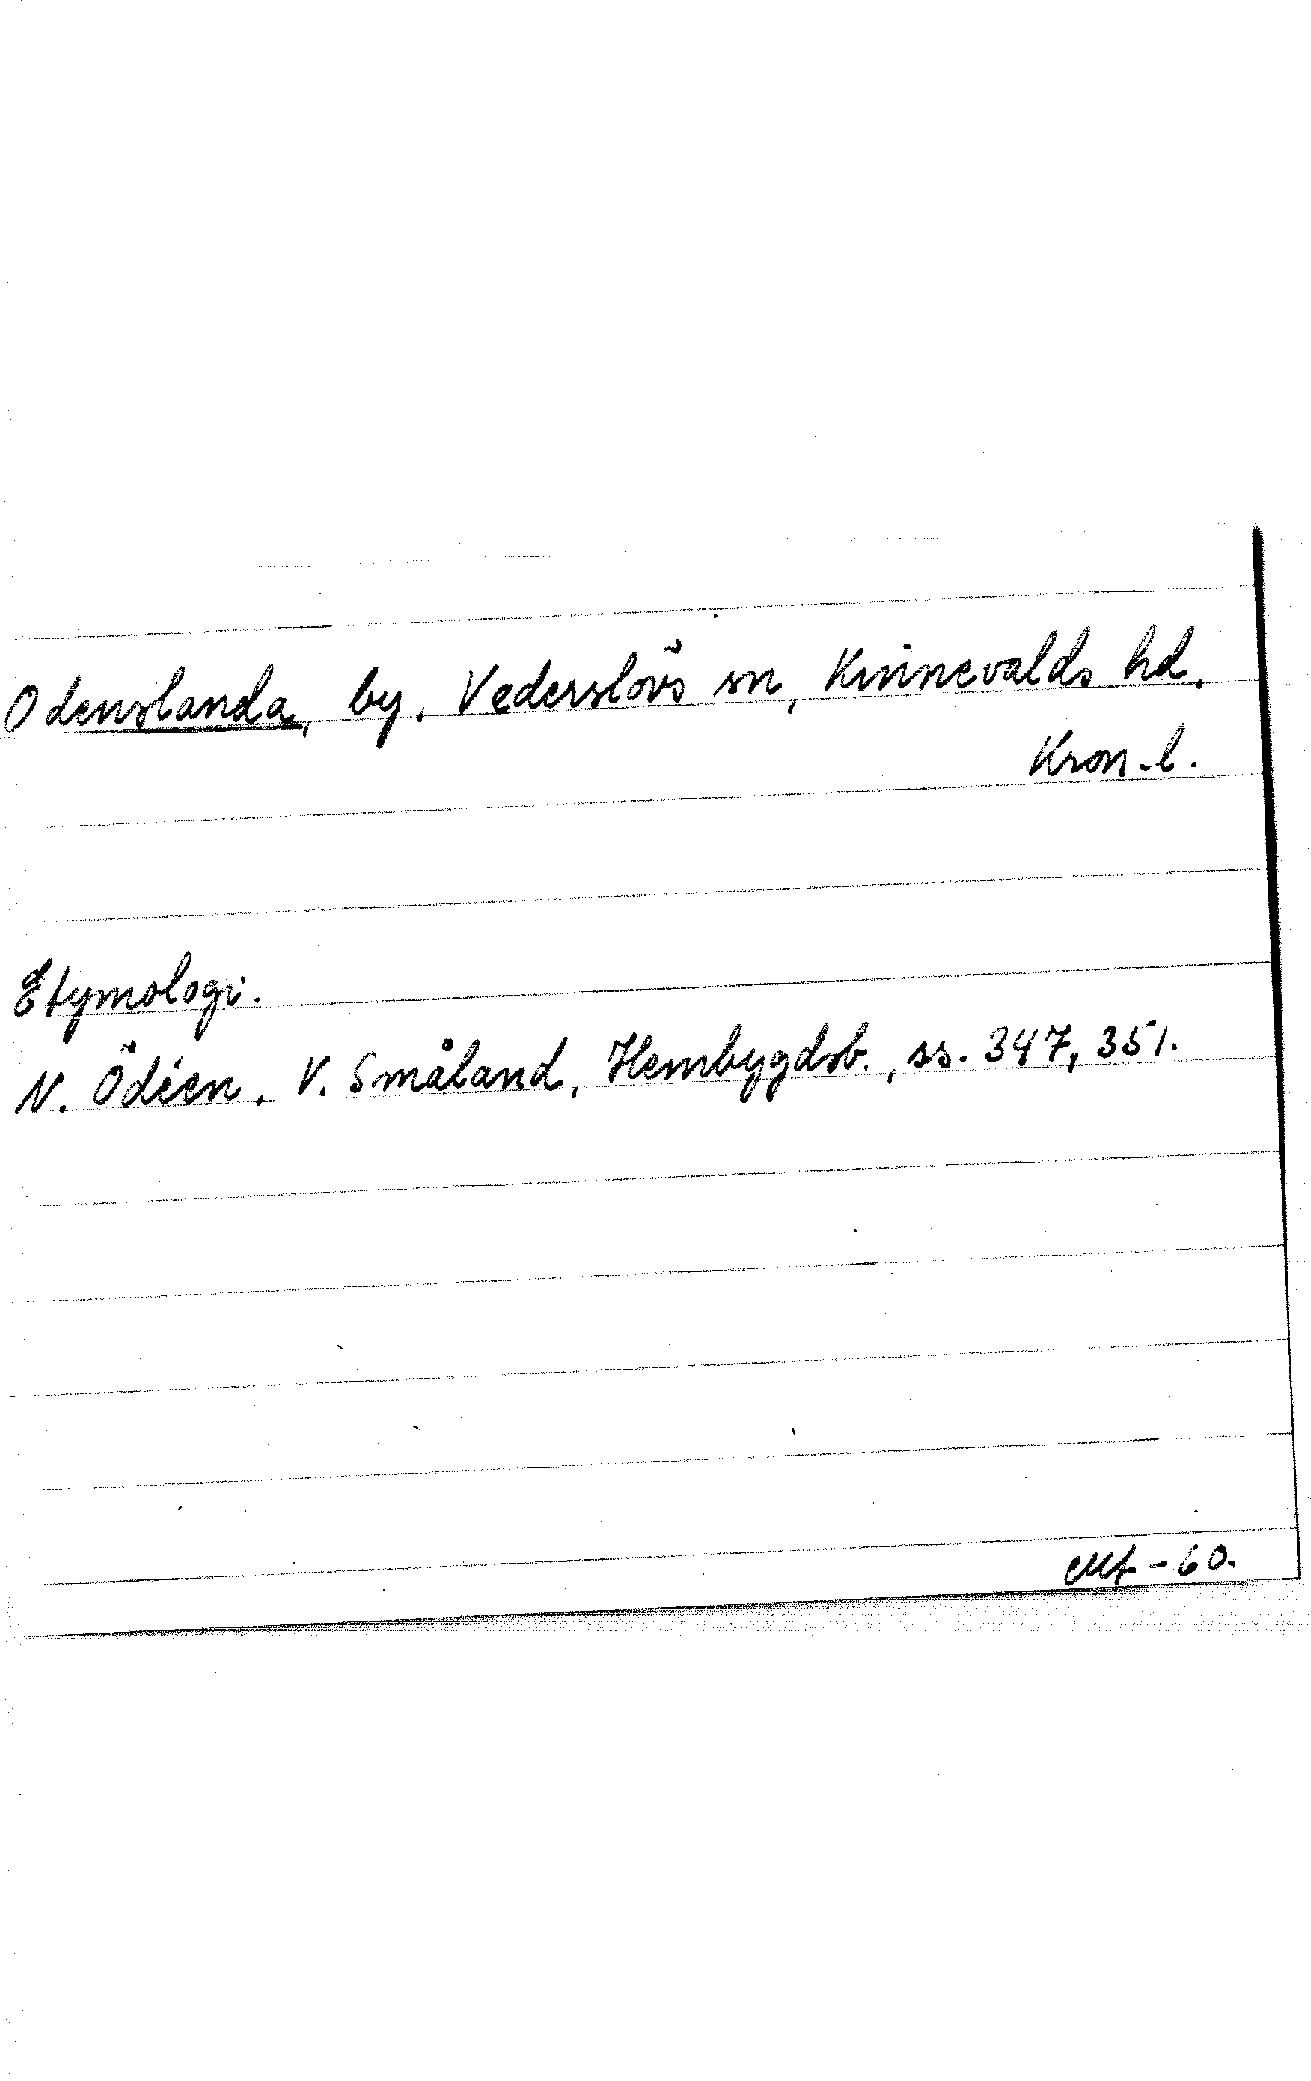 Odenslanda, by, Vederslövs sn, Kinnevalds hd.
Kron.l.
Etymologi.
N. Ödéen, V. Småland, Hembygdsb., ss. 347, 351.
-60.